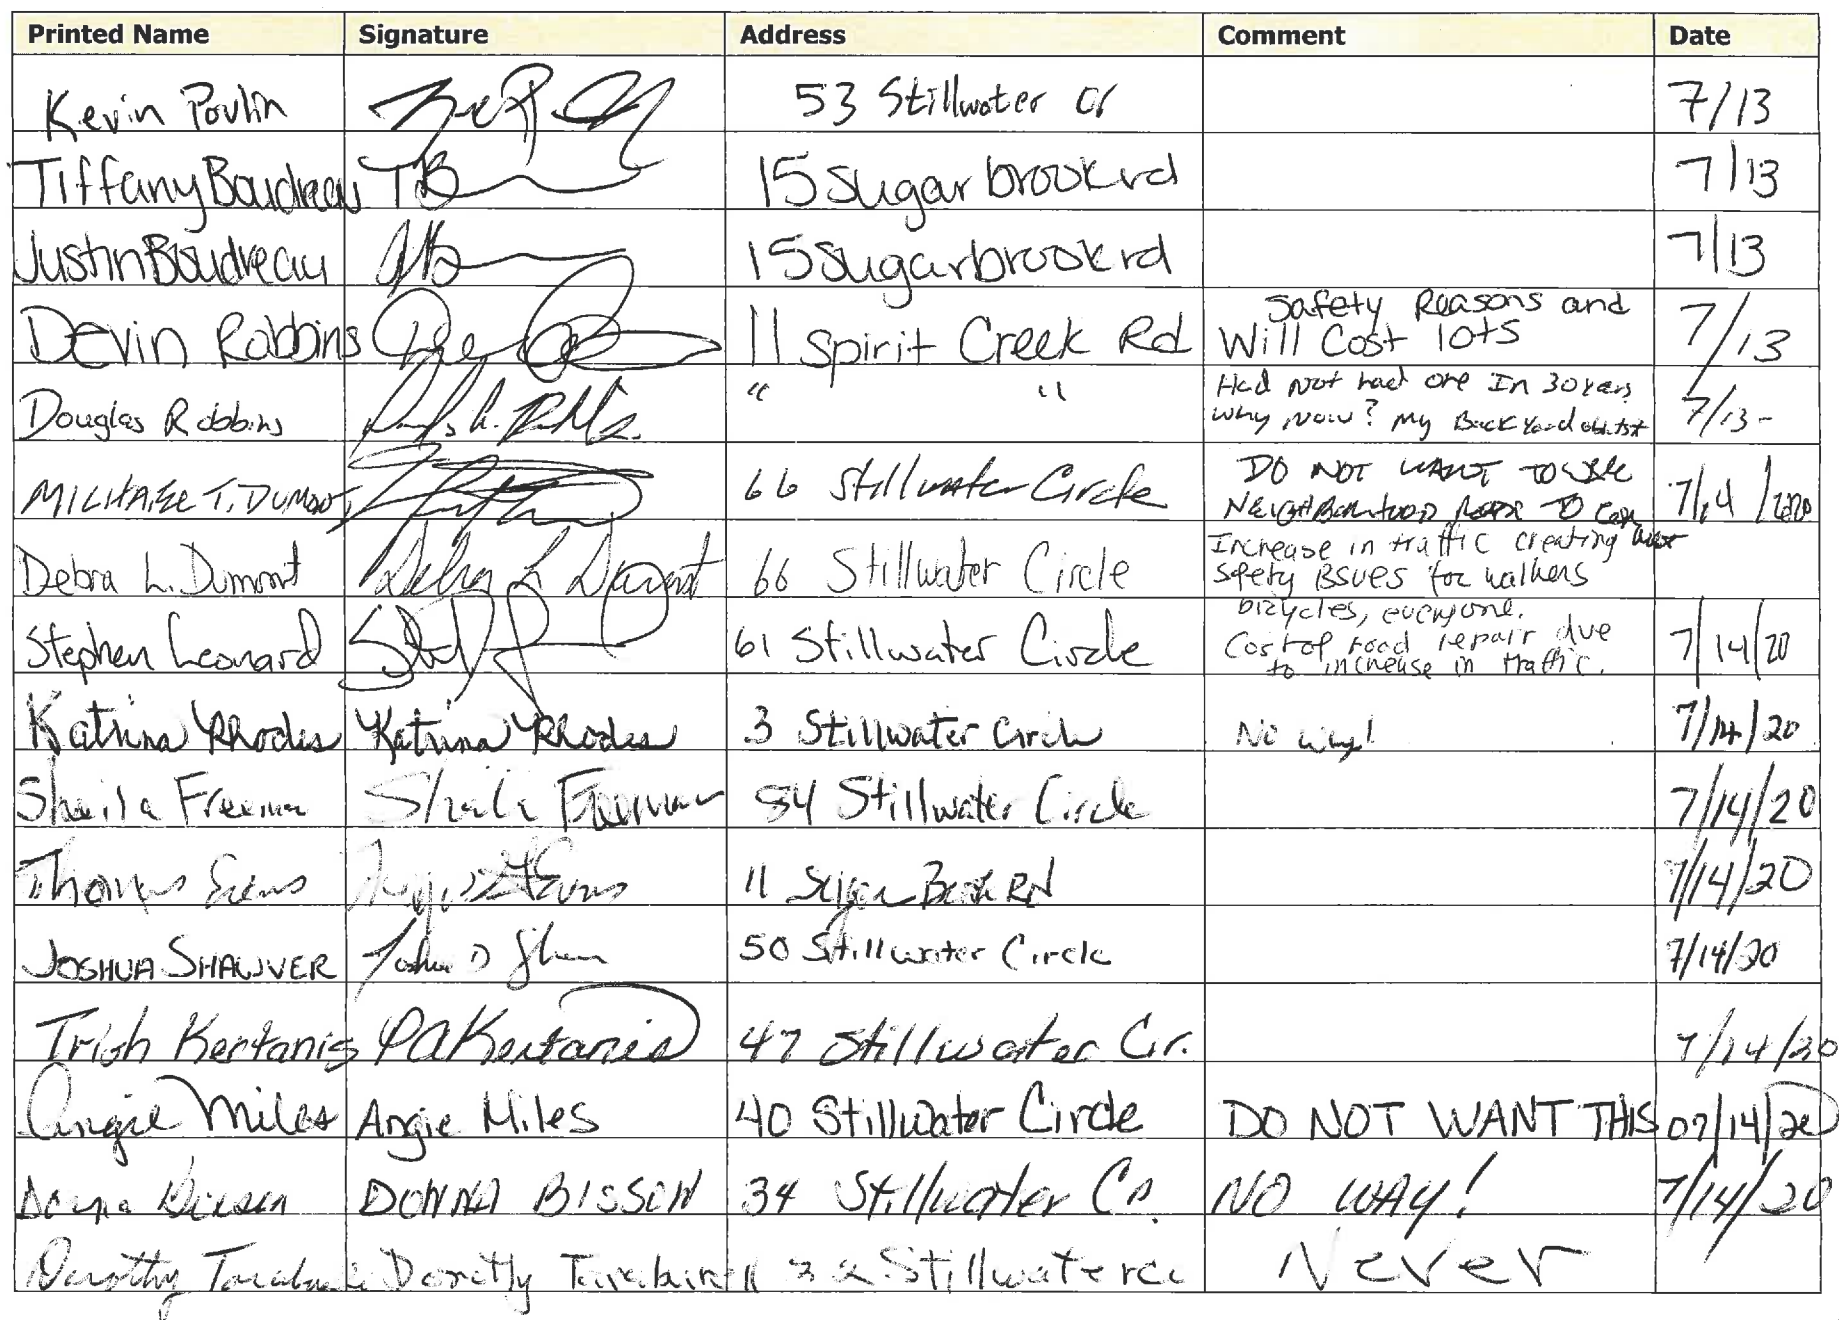 Printed Name Signature Address Comment Date
Kevin Poulin 53 Stillwater Cir 7/13
Tiffany Boudreau TB 15 Sugarbrook rd 7/13
Justin Boudreau JB 15 Sugarbrook rd 7/13
Devin Robbins 11 Spirit Creek Rd Safety Reasons and 7/13
Will Cost lots
Douglas Robbins " " Had Not had one In 30 years 7/13-
Why Now? My Back Yard
MICHAEL T. DUMONT 66 Stillwater Circle DO NOT WANT TO USE 7/14/2020
NEIGHBORHOOD ROADS TO
Debra L. Dumont Debra L Dumont 66 Stillwater Circle Increase in traffic creating
safety issues for walkers
Stephen Leonard 61 Stillwater Circle bicycles, everyone. 7/14/20
Cost of road repair due
to increase in traffic.
Katrina Rhodes Katrina Rhodes 3 Stillwater Circle No way! 7/14/20
Sheila Freeman Sheila Freeman 84 Stillwater Circle 7/14/20
Thomas 11 Sugar Brook RD 7/14/20
JOSHUA SHAWVER Joshua D 50 Stillwater Circle 7/14/20
Trish Kertanis PAKertanis 47 Stillwater Cir. 7/14/20
Angie Miles Angie Miles 40 Stillwater Circle DO NOT WANT THIS 07/14/20
Donna Bisson DONNA BISSON 34 Stillwater Cir. NO WAY! 7/14/20
Dorothy Dorothy 32 Stillwater Never